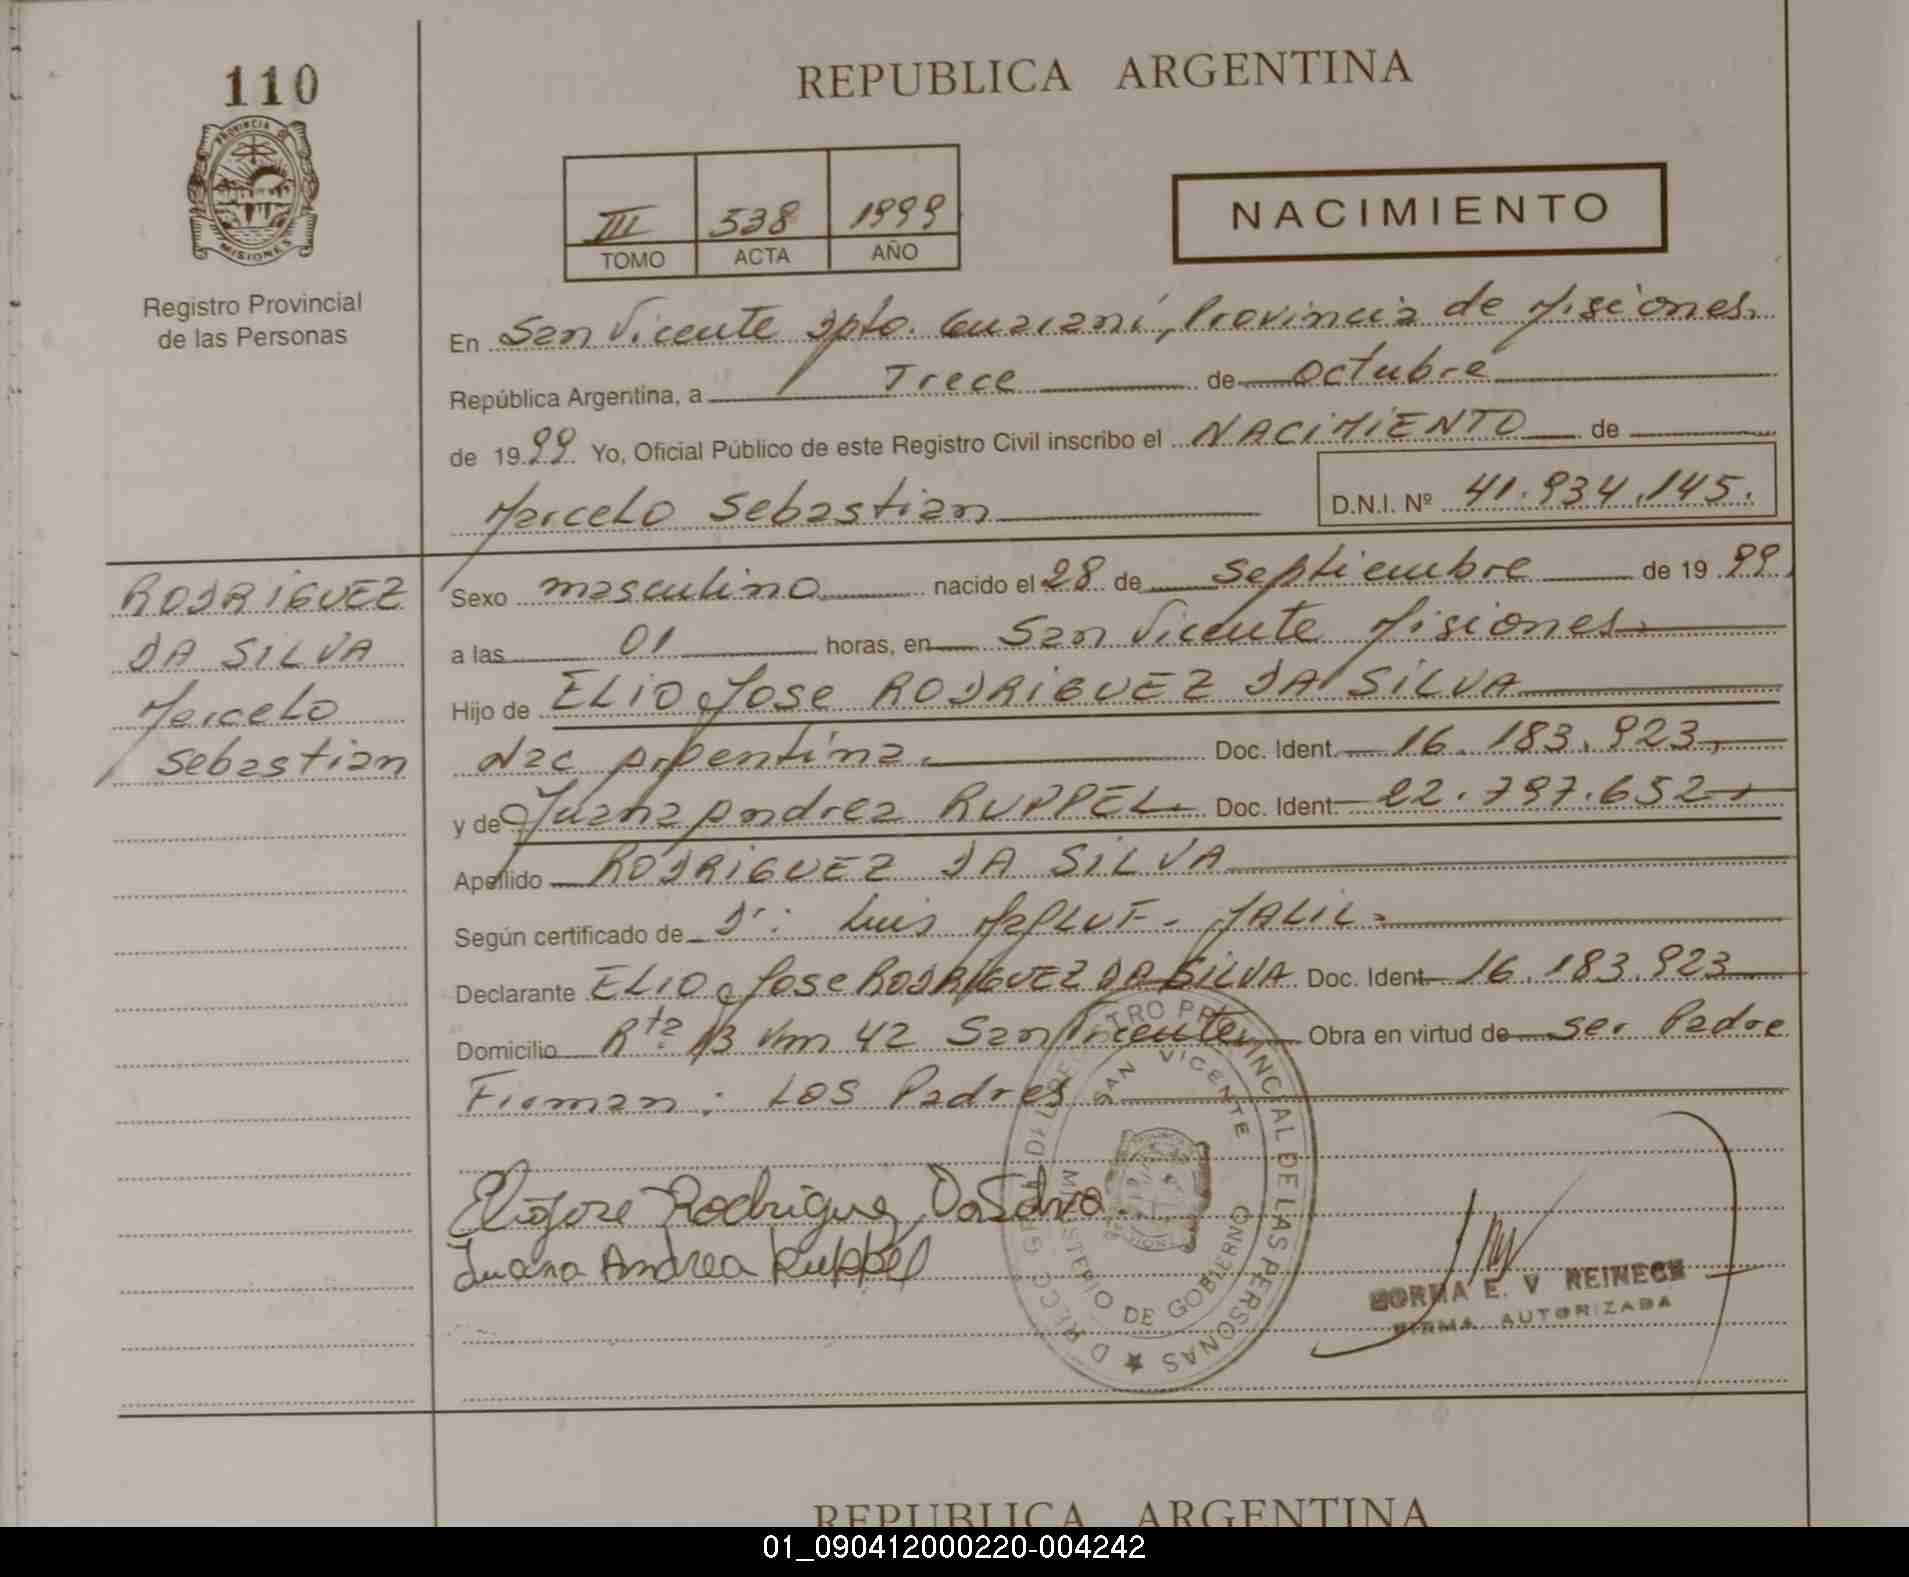 110
REPUBLICA ARGENTINA
PROVINCIA DE
MISIONES
III 538 1999
TOMO ACTA AÑO
NACIMIENTO
Registro Provincial
de las Personas
En San Vicente Dpto. Guaraní, Provincia de Misiones.
República Argentina, a Trece de octubre
de 1999 Yo, Oficial Público de este Registro Civil inscribo el NACIMIENTO de
Marcelo Sebastian
D.N.I. Nº 41.934.145.
RODRIGUEZ
DA SILVA
Marcelo
Sebastian
Sexo masculino nacido el 28 de Septiembre de 1999
a las 01 horas, en San Vicente Misiones
Hijo de ELIO Jose RODRIGUEZ DA SILVA
Nac Argentina. Doc. Ident. 16.183.923
y de Juana Andrea RUPPEL Doc. Ident. 22.797.652
Apellido RODRIGUEZ DA SILVA
Según certificado de Dr: Luis JALIL
Declarante ELIO Jose RODRIGUEZ DA SILVA Doc. Ident 16.183.923
Domicilio Rta 13 Km 42 San Vicente Obra en virtud de ser Padre
Firman: Los Padres
Elio Jose Rodriguez Da Silva
Juana Andrea Ruppel
DIRECC. GRAL. DEL REGISTRO PROVINCIAL DE LAS PERSONAS
SAN VICENTE
MINISTERIO DE GOBIERNO
NORMA E. V REINECK
FIRMA AUTORIZADA
REPUBLICA ARGENTINA
01_090412000220-004242